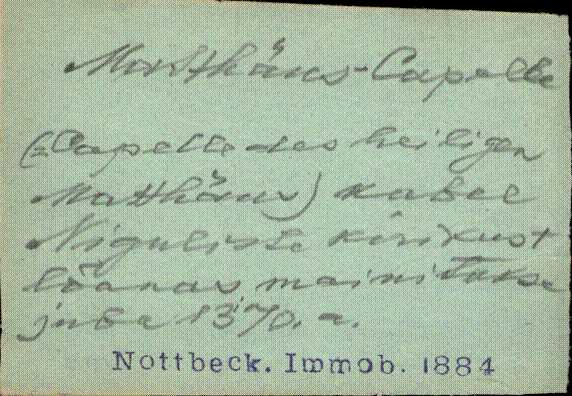 Matthäus-Capelle
(=Capelle des heiligen
Matthäus) kabel
Niguliste kirikust
lõunas mainitakse
juba 1370. a.
Nottbeck. Immob. 1884